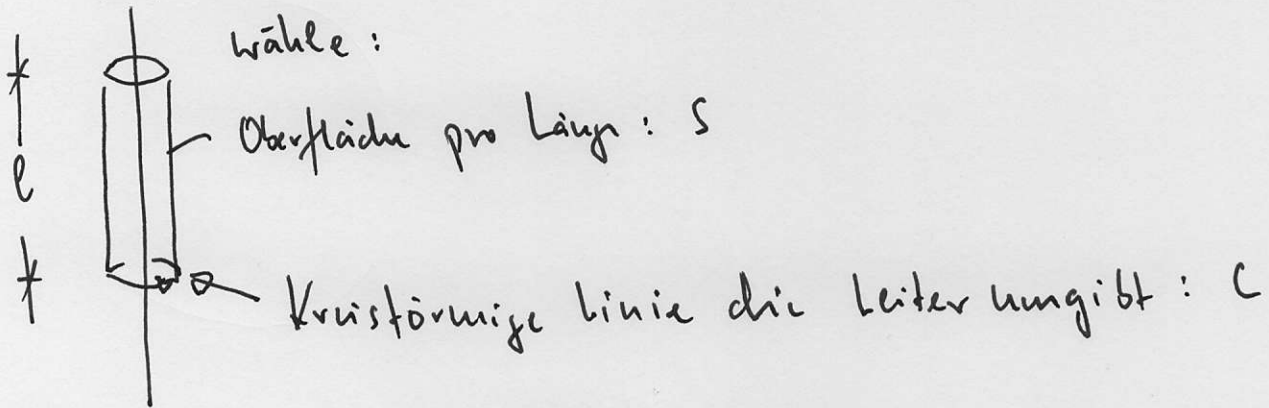 wähle :
Oberfläche pro Länge : S
l
Kreisförmige Linie die Leiter umgibt : C